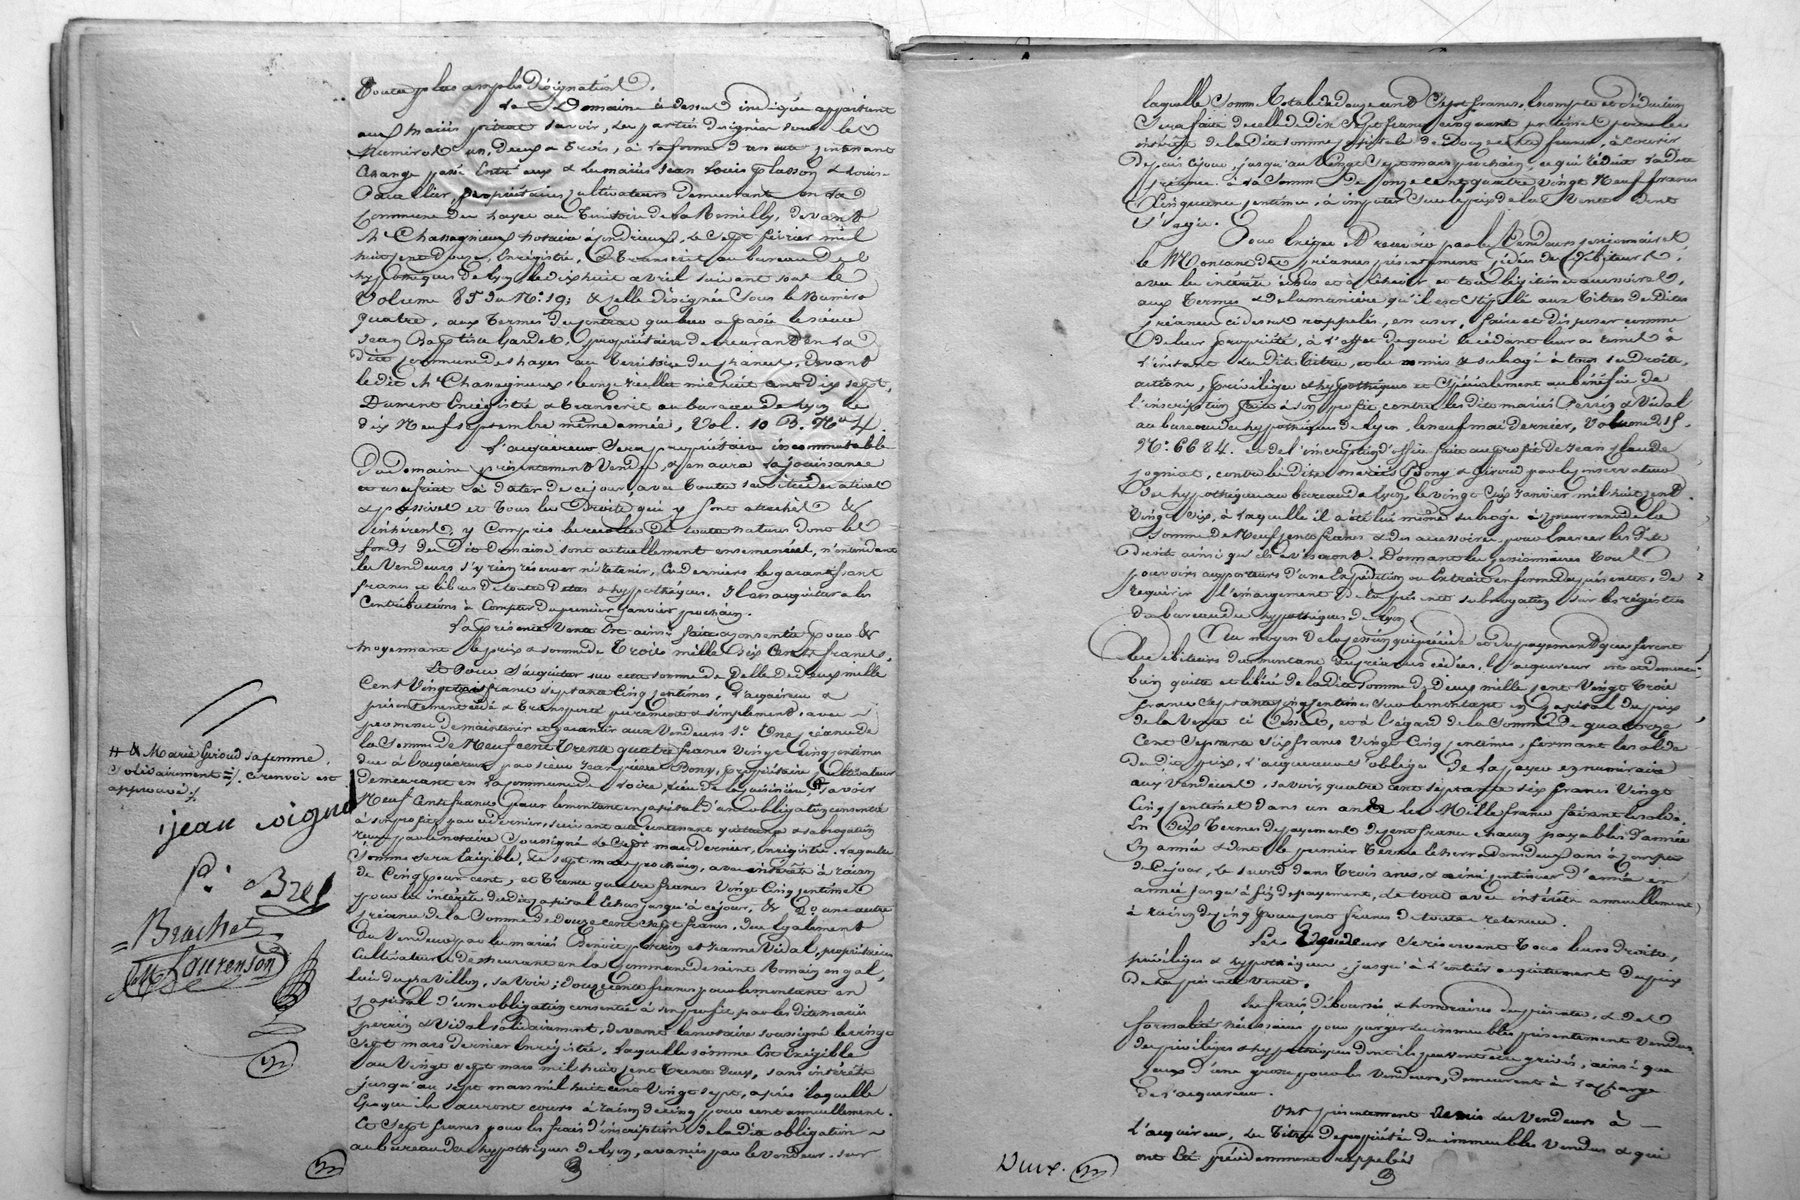 toutes plus amples désignations.
Le Domaine ci dessus indiqué appartient
aux mariés pitrat savoir, les parties désignées sous les
Numéros un, deux & trois, à la forme d'un acte contenant
Change passé entre eux & les mariés Jean Louis Plasson & Louise
propriétaires cultivateurs demeurants en la
Commune des hayes au territoire de la Remilly, devant
Me Chassagnieux notaire à Condrieux, le sept février mil
huit cent douze, enregistré, & transcrit au bureau des
hypothèques de Lyon le dix huit avril suivant sous le
Volume 85 du No. 19; & celle désignée sous le Numéro
quatre, aux termes du contrat que leur a passé le sieur
Jean Baptiste Gardet, propriétaire demeurant en la
dite commune des hayes au territoire de , devant
le dit Me Chassagnieux, le onze juillet mil huit cent dix sept,
Dument enregistré & transcrit au bureau de Lyon le
dix Neuf septembre même année, Vol. 10 B. No 4.
L'acquéreur sera propriétaire incommutable
Du domaine présentement vendu, & en aura la jouissance
et usufruit à dater de ce jour, avec toutes servitudes actives
& passives et tous les Droits qui y sont attachés &
inhérents, y compris les récoltes de toute nature dont les
fonds du Dit Domaine sont actuellement ensemencés, n'entendant
les Vendeurs s'y rien réserver ni retenir, Ces derniers le garantissant
francs et libres de toutes dettes & hypothèques. Il en acquittera les
Contributions à compter du premier janvier prochain.
La présente Vente est ainsi faite & consentie pour &
moyennant le prix & somme de Trois mille six Cents francs.
Et Pour s'acquitter sur cette somme de celle de deux mille
Cent Vingt trois francs septante Cinq centimes, l'acquéreur a
présentement cédé & transporté purement & simplement, avec
promesse de maintenir et garantir aux Vendeurs 1o. Une créance de
la Somme de Neuf cent trente quatre francs Vingt Cinq centimes
due à l'acquéreur par sieur Jean pierre Bony, propriétaire Cultivateur
demeurant en la commune de Loire, Lieu de , # savoir
Neuf cents francs pour le montant en capital d'une obligation consentie
à son profit par ce dernier, suivant acte contenant quittance & subrogation
reçu par le notaire soussigné le Sept mars dernier, enregistré. Laquelle
Somme sera Exigible, le sept mars prochain, avec intérêts à raison
de Cinq pour cent, et trente quatre francs Vingt Cinq centimes
pour les intérêts du dit capital échus jusqu'à ce jour, & 2o. une autre
créance de la Somme de douze cent sept francs, due également
au Vendeur par les mariés Benoit perrin et Jeanne Vidal, propriétaires
Cultivateurs demeurant en la Commune de saint Romain en gal,
lieu du pavillon, savoir; Douze cents francs pour le montant en
capital d'une obligation consentie à son profit, par les dits mariés
perrin & Vidal solidairement, devant le notaire soussigné le vingt
Sept mars dernier enregistré. Laquelle somme Est Exigible
au Vingt sept mars mil huit cent trente Deux, sans intérêts
jusqu'au sept mars mil huit cent Vingt sept, après laquelle
Epoque ils auront cours à raison de cinq pour cent annuellement.
Et sept francs pour les frais d'inscription de la dite obligation
au bureau des hypothèques de Lyon, avancés par le Vendeur. sur
# & Marie Giroud sa femme,
solidairement ce renvoi est
approuvé
jean
P. Brel
Brachet
Laurenson
laquelle Somme Totale de douze cent Sept francs, le compte et déduction
Sera faite de celle de Dix Sept francs Cinquante centimes pour les
intérêts de la dite somme capitale de Douze cents francs, à courir
depuis ce jour, jusqu'au Vingt Sept mars prochain, ce qui réduit la dite
créance à la Somme de onze cent quatre Vingt Neuf francs
Cinquante centimes, à imputer sur le prix de la Vente dont
s'agit.
Pour Exiger & recevoir par les Vendeurs cessionnaires,
le Montant des créances présentement cédées des débiteurs,
avec les intérêts échus et à échoir et tous légitimes accessoires,
aux termes & de la manière qu'il est stipulé aux titres des dites
créances ci dessus rappelés, en user, faire et disposer comme
De leur propriété, à l'effet de quoi le cédant leur a remis à
l'instant les dits titres, et les a mis & subrogé à tous ses droits,
actions, privilèges & hypothèques et spécialement au bénéfice de
l'inscription faite à son profit contre les dits mariés Perrin & Vidal
au bureau des hypothèques de Lyon, le neuf mai dernier, Volume 215.
No. 6684. et de l'inscription d'office faite au profit de Jean claude
, contre les dits mariés Bony & Giroud par le conservateur
des hypothèques au bureau de Lyon, le vingt six janvier mil huit cent
Vingt six, à laquelle il a été lui même subrogé à concurrence de la
Somme de Neuf cents francs & des accessoires, pour Exercer les dits
droits ainsi qu'ils aviseront. Donnant les cessionnaires tous
pouvoirs au porteur d'une Expédition ou Extrait en forme des présentes, de
requérir l'émargement de la présente subrogation sur les registres
du bureau des hypothèques de Lyon.
Au moyen de la cession qui précède et du payement que feront
les débiteurs du montant des créances cédées, l'acquéreur est et demeure
bien quitte et libéré de la dite somme de Deux mille cent Vingt trois
francs septante cinq centimes sur le montant en capital du prix
de la Vente ci dessus, et à l'égard de la somme de quatorze
Cent Septante Six francs Vingt Cinq centimes, formant le solde
du dit prix, l'acquéreur s'oblige de la payer en numéraire
aux Vendeurs, savoir, quatre cent septante six francs Vingt
Cinq centimes dans un an & les Mille francs faisant le solde
En Dix termes de payement de cent francs chacun payables d'année
en année & dont le premier terme écherra dans deux ans à compter
de ce jour, le second dans trois ans, & ainsi continuer d'année en
année jusqu'à fin de payement, le tout avec intérêts annuellement
à raison de cinq pour cent francs de toute retenue.
Les Vendeurs se réservent tous leurs droits,
privilèges & hypothèques, jusqu'à l'entier acquittement du prix
De la présente vente.
Les frais, déboursés & honoraires des présentes, & des
formalités nécessaires pour purger les immeubles présentement Vendus
des privilèges & hypothèques dont ils peuvent être grevés, ainsi que
Ceux d'une grosse pour les Vendeurs, demeurent à la charge
de l'acquéreur.
Ont présentement Remis les Vendeurs à
l'acquéreur, les titres de propriété des immeubles Vendus & qui
ont été précédemment rappelés
Deux.